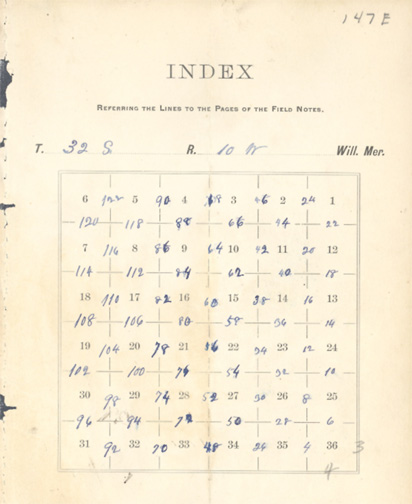 147E
INDEX
REFERRING THE LINES TO THE PAGES OF THE FIELD NOTES.
T. 32 S. R. 10 W Will. Mer.
6 122 5 90 4 68 3 46 2 24 1
120 118 88 66 44 22
7 116 8 86 9 64 10 42 11 20 12
114 112 84 62 40 18
18 110 17 82 16 60 15 38 14 16 13
108 106 80 58 36 14
19 104 20 78 21 56 22 34 23 12 24
102 100 76 54 32 10
30 98 29 74 28 52 27 30 26 8 25
96 94 72 50 28 6
31 92 32 70 33 48 34 26 35 4 36 3
4